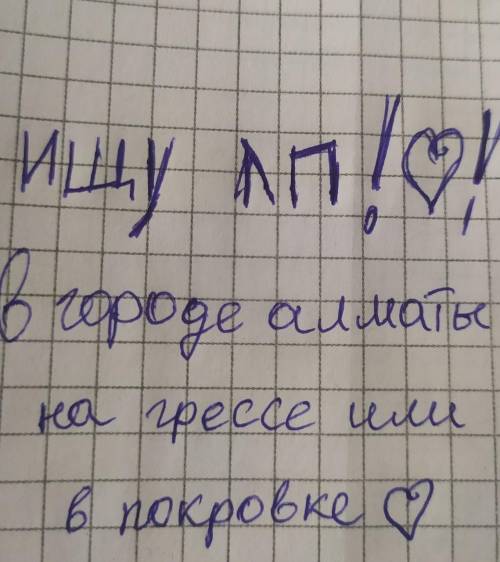 ищу лп!♡!
в городе алматы
на грессе или
в покровке ♡